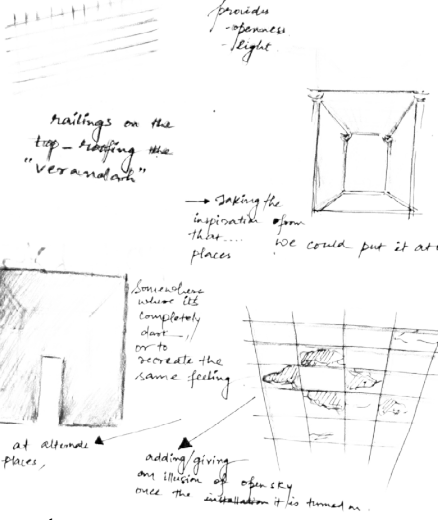 provides
- openness
- light.
railings on the
top - roofing the
"verandah"
→ Taking the
inspiration from
that....
places
we could put it at
Somewhere
where its
completely
dark
or to
recreate the
same feeling
at alternate
places,
adding/giving
an illusion of open sky
once the installation it is turned on.